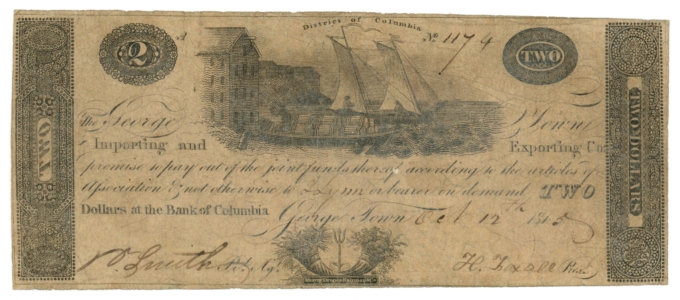 District of Columbia
2 A No. 1174 TWO
The George Town
Importing and Exporting Co
promise to pay out of the joint funds thereof according to the articles of
Association & not otherwise to or bearer on demand TWO
Dollars at the Bank of Columbia George Town Oct 12th
Smith Prest
TWO
TWO DOLLARS